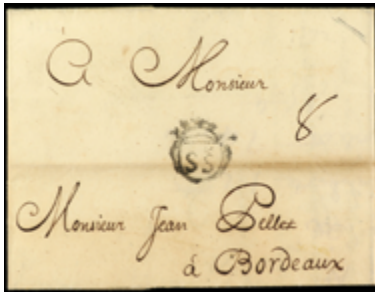 A Monsieur
8
SS
Monsieur Jean Pellet
à Bordeaux